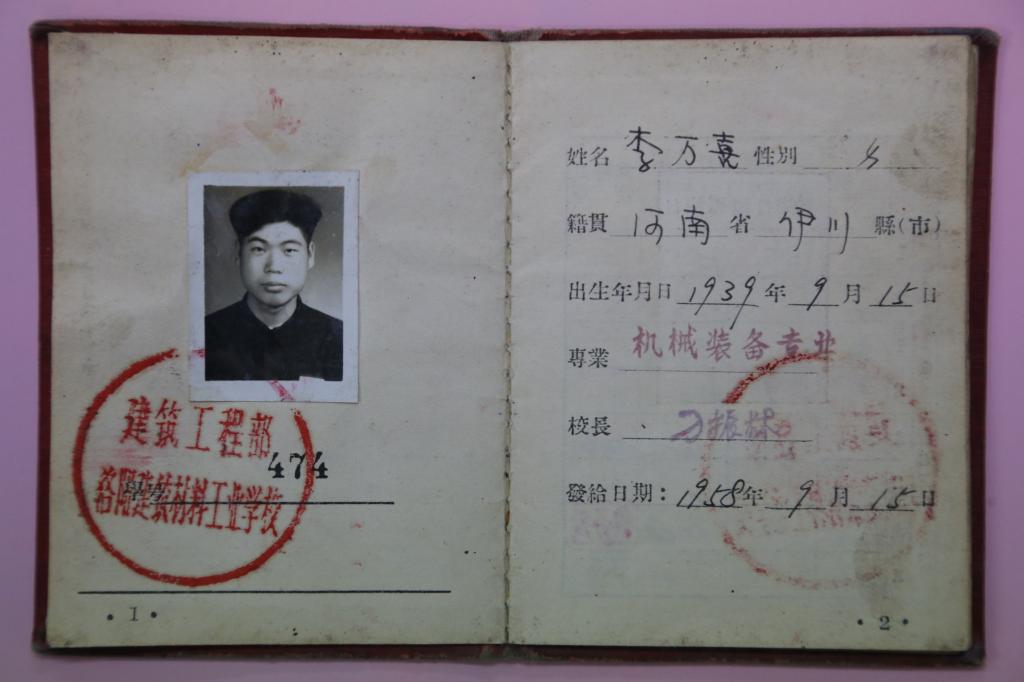 建筑工程部
474
洛阳建筑材料工业学校
學号
·1·
姓名 李万喜 性別
籍貫 河南 省 伊川 縣(市)
出生年月日 1939 年 9 月 15 日
机械装备专业
專業
校長 刁振林
發給日期：1958年 9 月 15 日
·2·